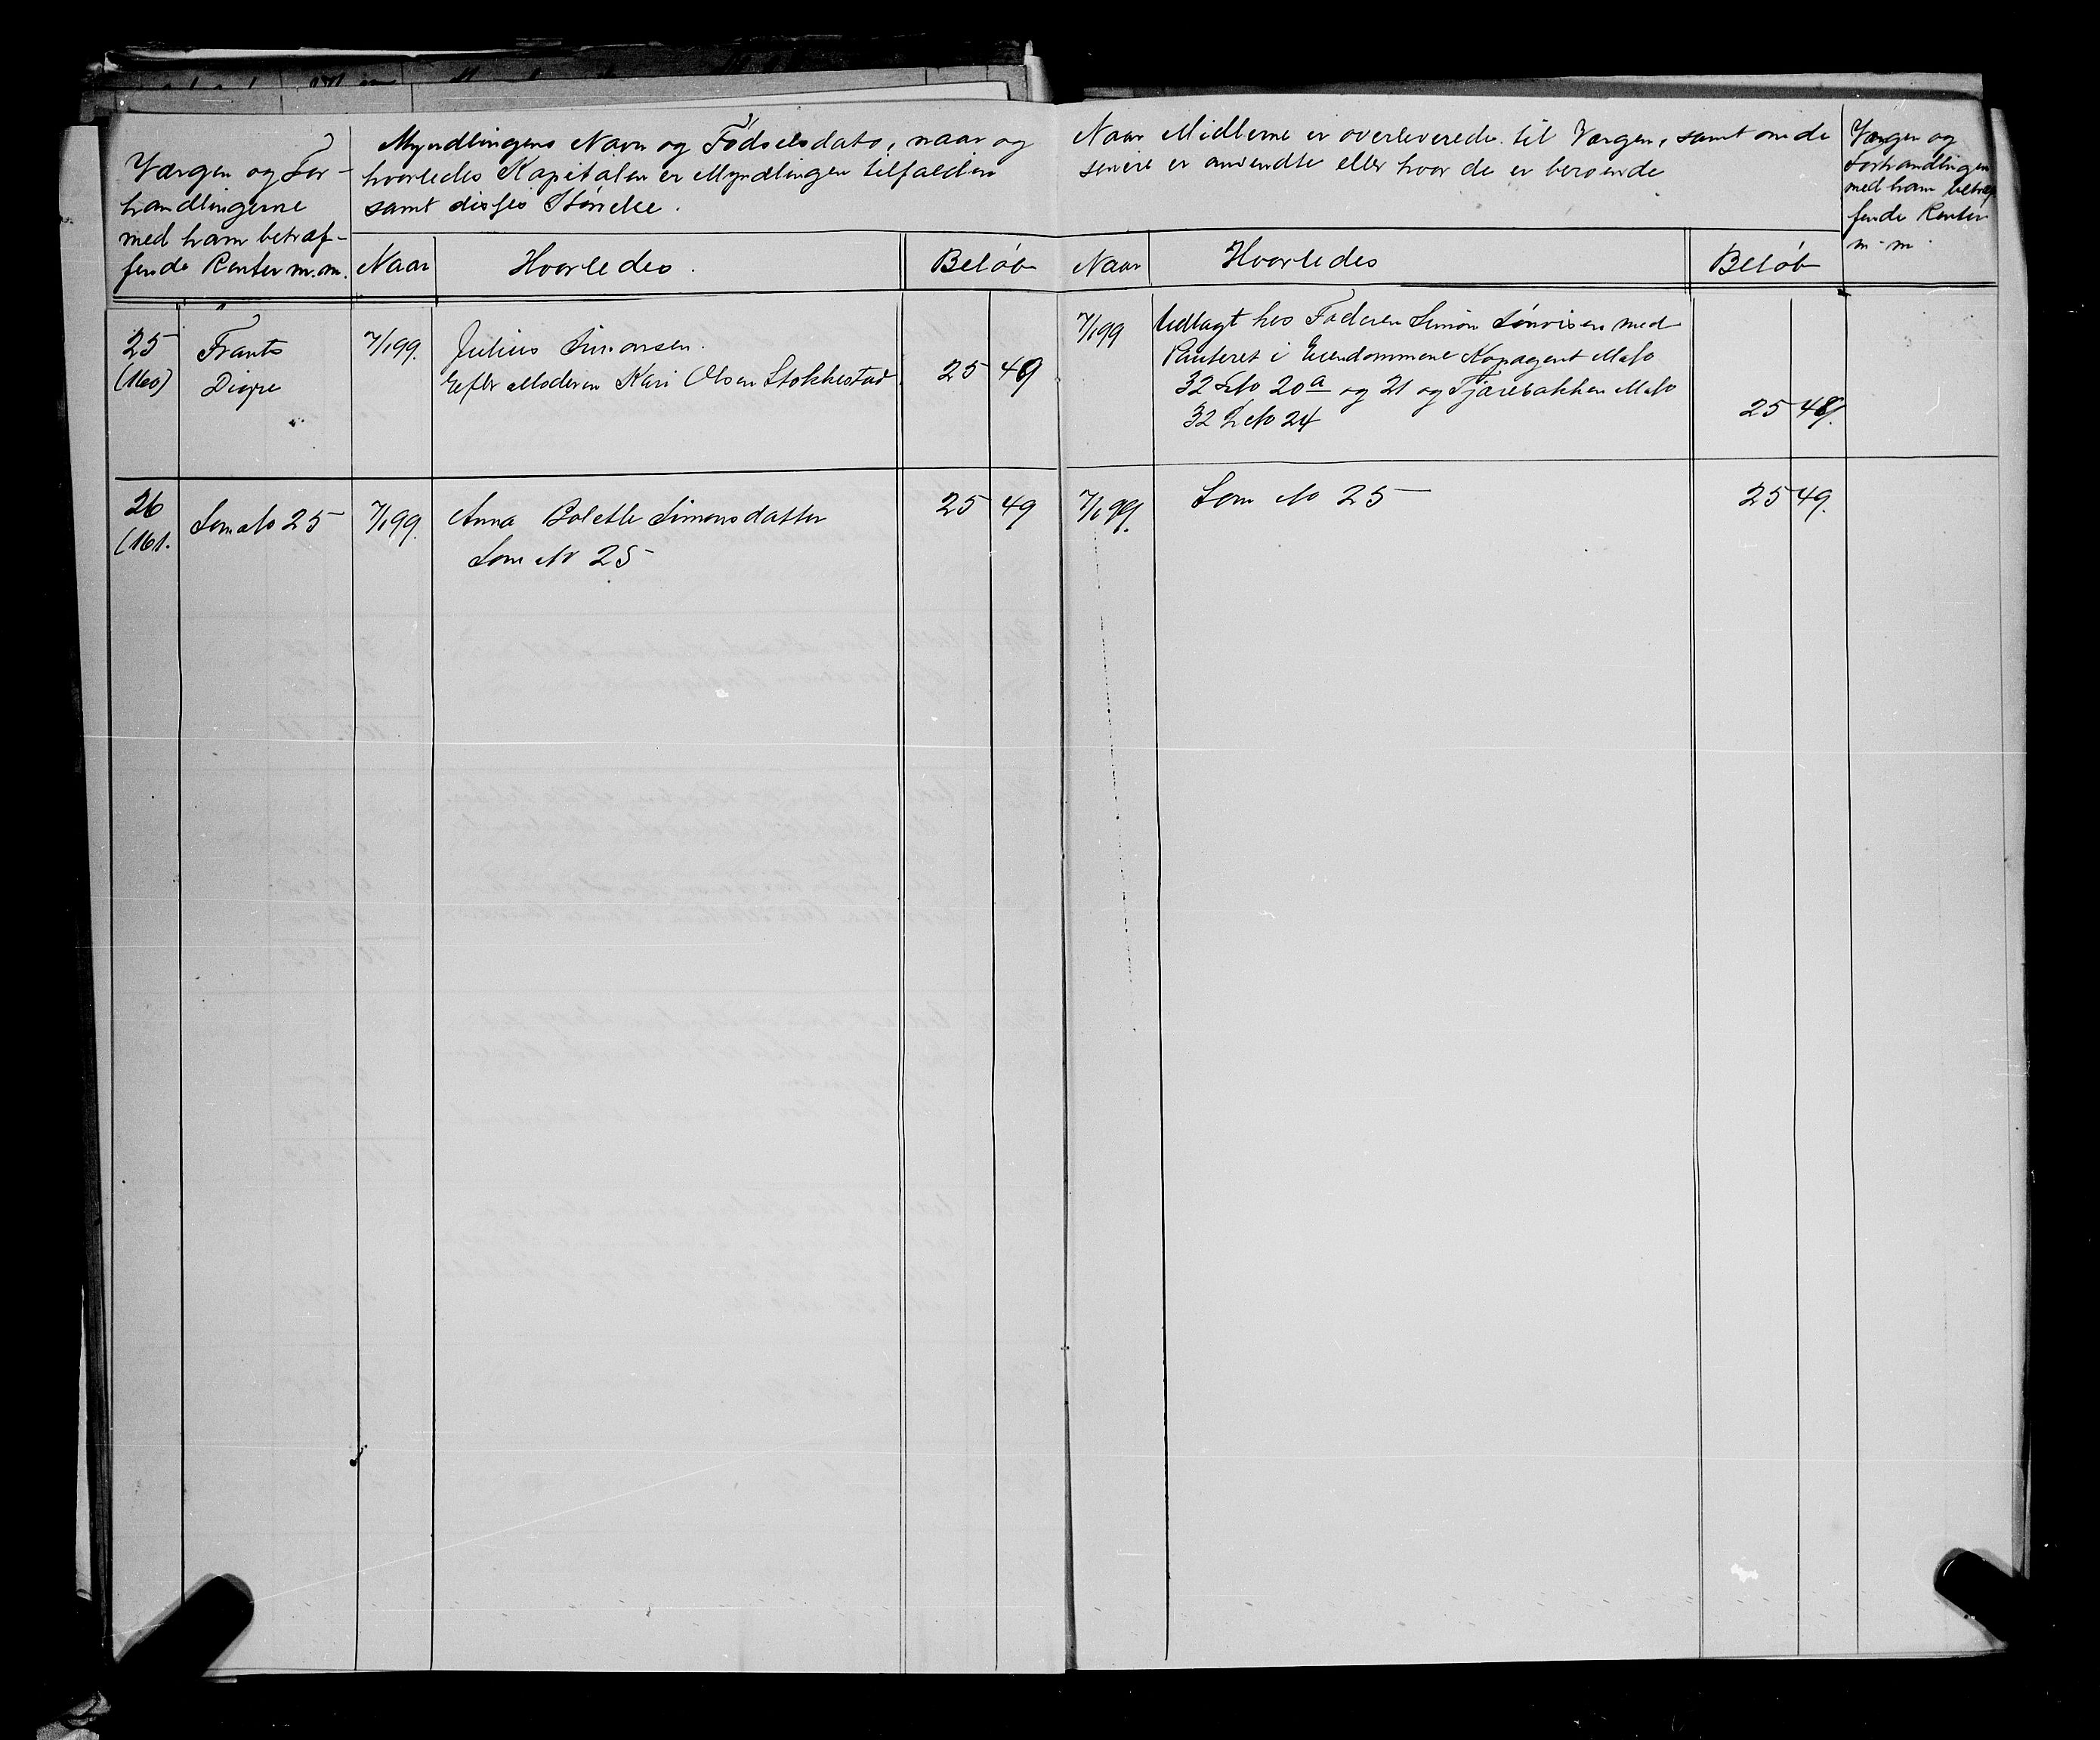 Værgen og For-
handlingerne
med ham betræf-
fende Renter m.m.
Myndlingens Navn og Fødselsdato, naar og
hvorledes Kapitalen er Myndlingen tilfalden
samt disses Størrelse.
Naar
Hvorledes.
Beløb
Naar Midlerne er overleverede til Værgen, samt om de
senere er anvendte eller hvor de er beroende
Naar
Hvorledes
Beløb
Værgen og
Forhandlingen
med ham betræf
fende Renter
m.m.
25
(160)
Frants
Digre
7/1 99.
Julius Simonsen.
Efter Moderen Kari Olsen Stokkestad.
25 49
7/1 99
Udlagt hos Faderen Simon Tønvisen med
Panteret i Eiendommene Kopagent M No
32 L No 20a og 21 og Tjærebakken M No
32 L No 24
25 49.
26
(161.
Som No 25
7/1 99.
Anna Bolette Simonsdatter
Som No 25
25 49
7/1 99.
Som No 25
25 49.